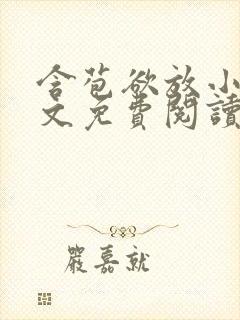 含苞欲放小
文免費閱讀
嚴嘉就